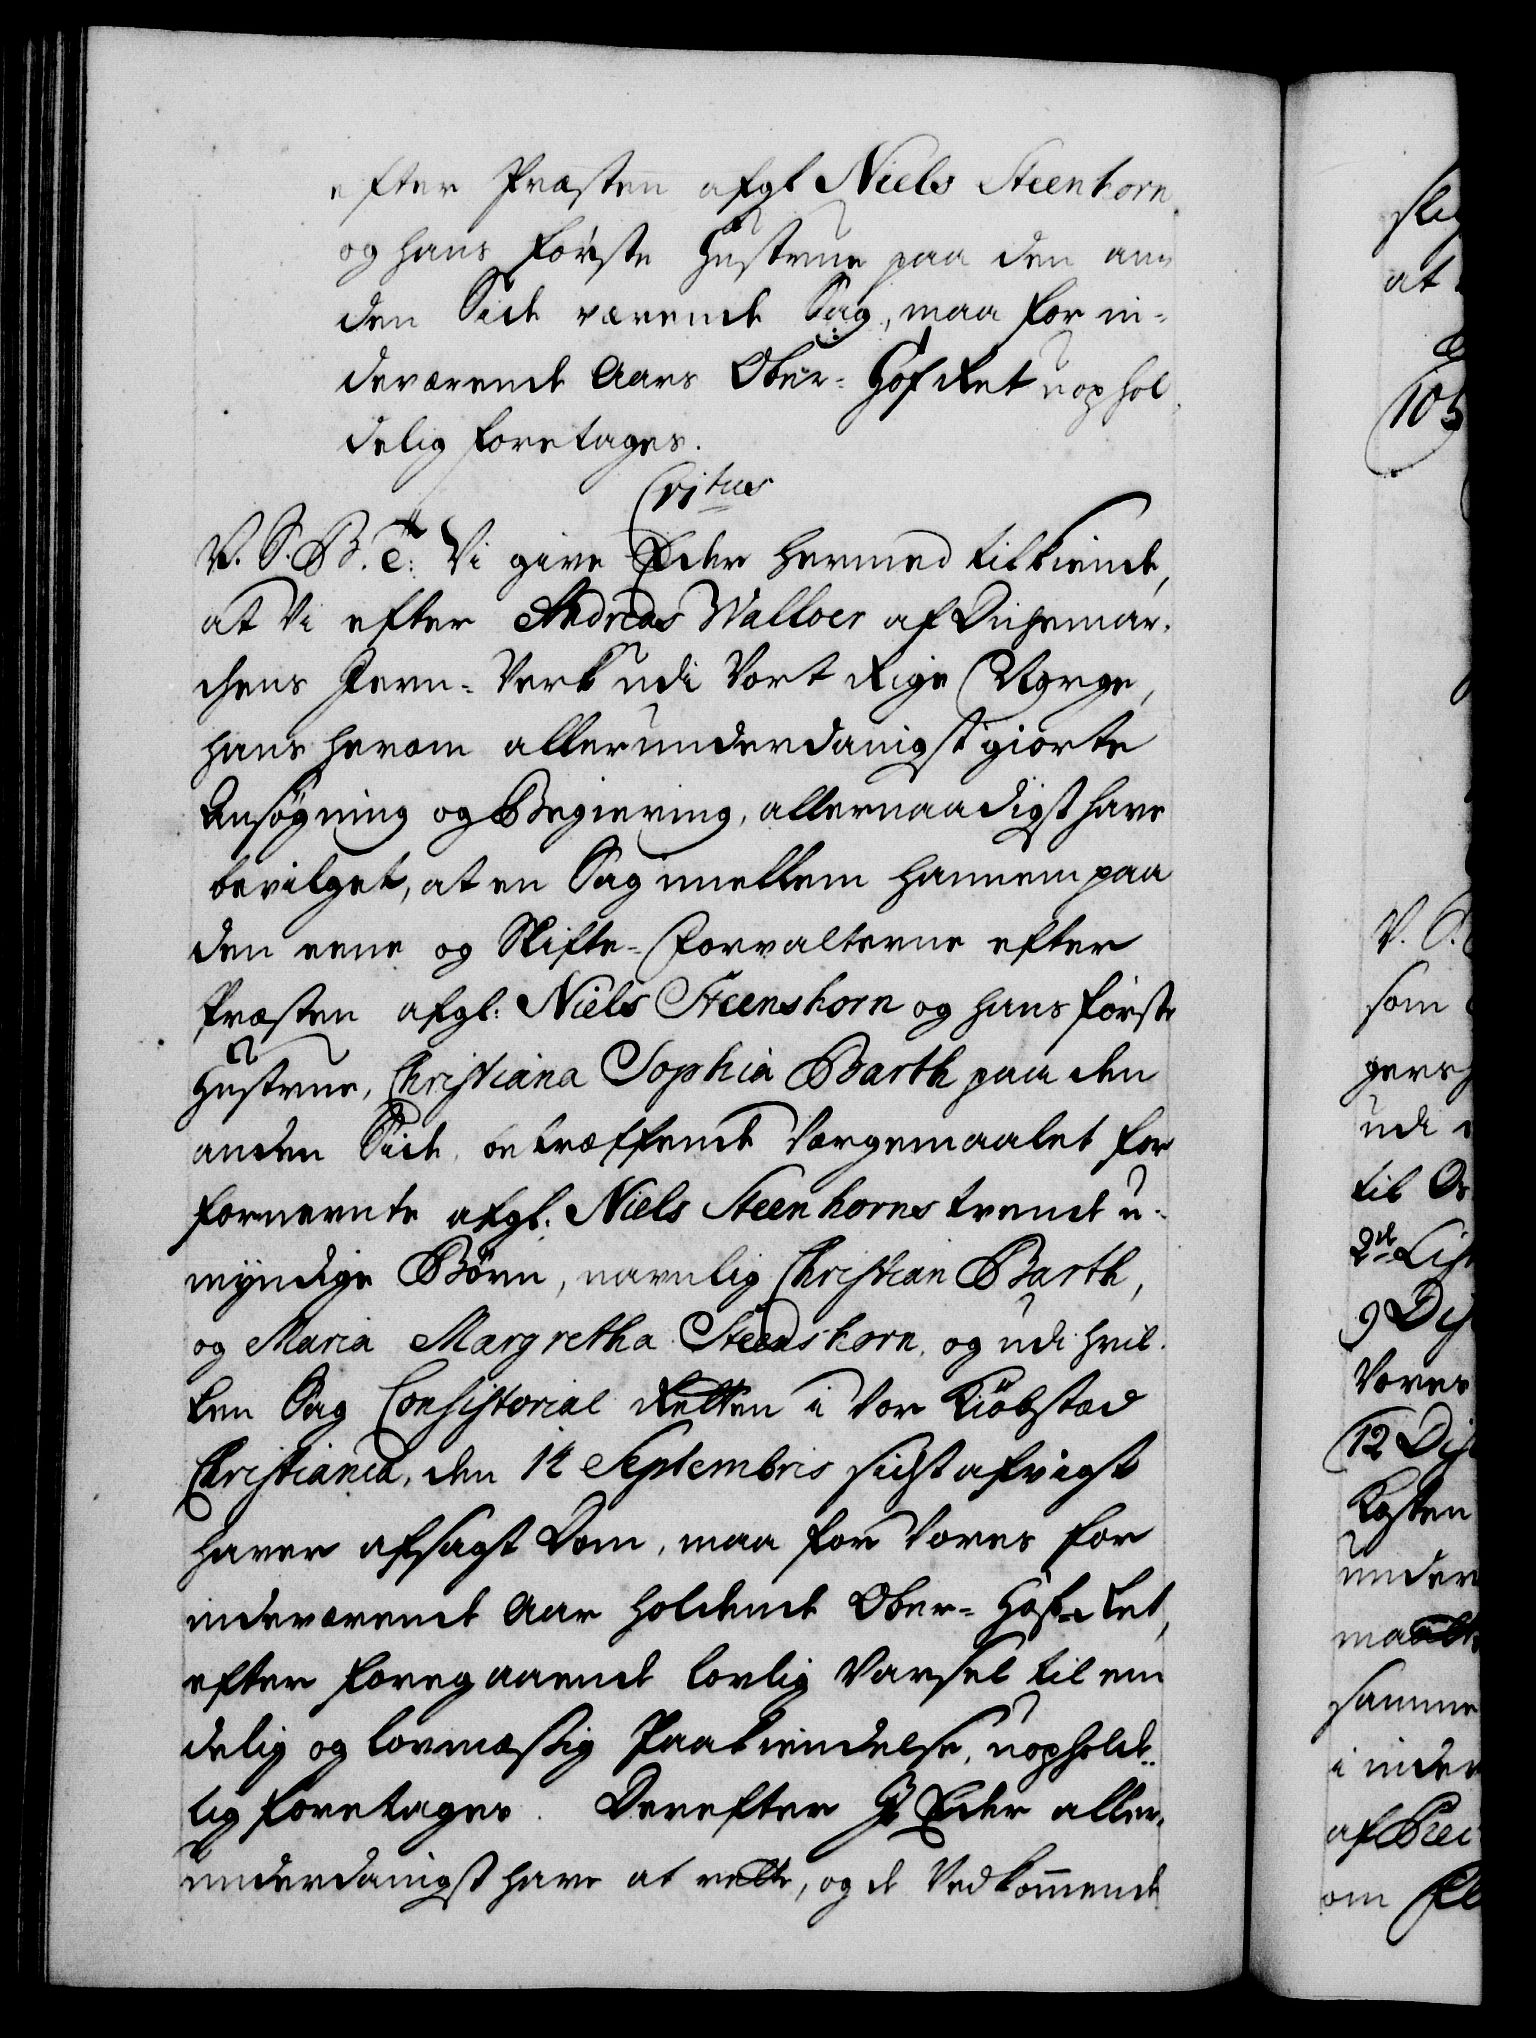 efter Præsten afgl Niels Steenhorn
og hans første Hustrue paa den an-
den Side værende Sag, maa for in-
deværende Aars Ober-Hof Ret uophol-
delig foretages.
V. S. B. T: Vi give Eder hermed tilkiende,
at Vi efter Andreas Walloer af Dichemar-
chens Jern-Verk udi Vort Rige Norge,
hans herom allerunderdanigst giorte
Ansøgning og Begiering, allernaadigst have
bevilget, at en Sag imellem hannem paa
den eene og Skifte-Forvalterne efter
Præsten afgl: Niels Steenshorn og hans første
Hustrue, Christiana Sophia Barth paa den
anden Side, betræffende Vergemaalet for
fornevnte afgl: Niels Steenhorns trende u-
myndige Børn, navnlig Christian Barth,
og Maria Margretha Steenshorn, og udi hvil-
ken Sag Consistorial Retten i Vor Kiøbstad
Christiania, den 14 Septembris sidstafvigt
haver afsagt Dom, maa for Vores for
indeværende Aar holdende Ober-Hof-Ret,
efter foregaaende lovlig Varsel til en-
delig og lovmæssig Paakiendelse, uopholde-
lig foretages. Derefter I Eder aller-
underdanigst have at rette, og de Vedkommende